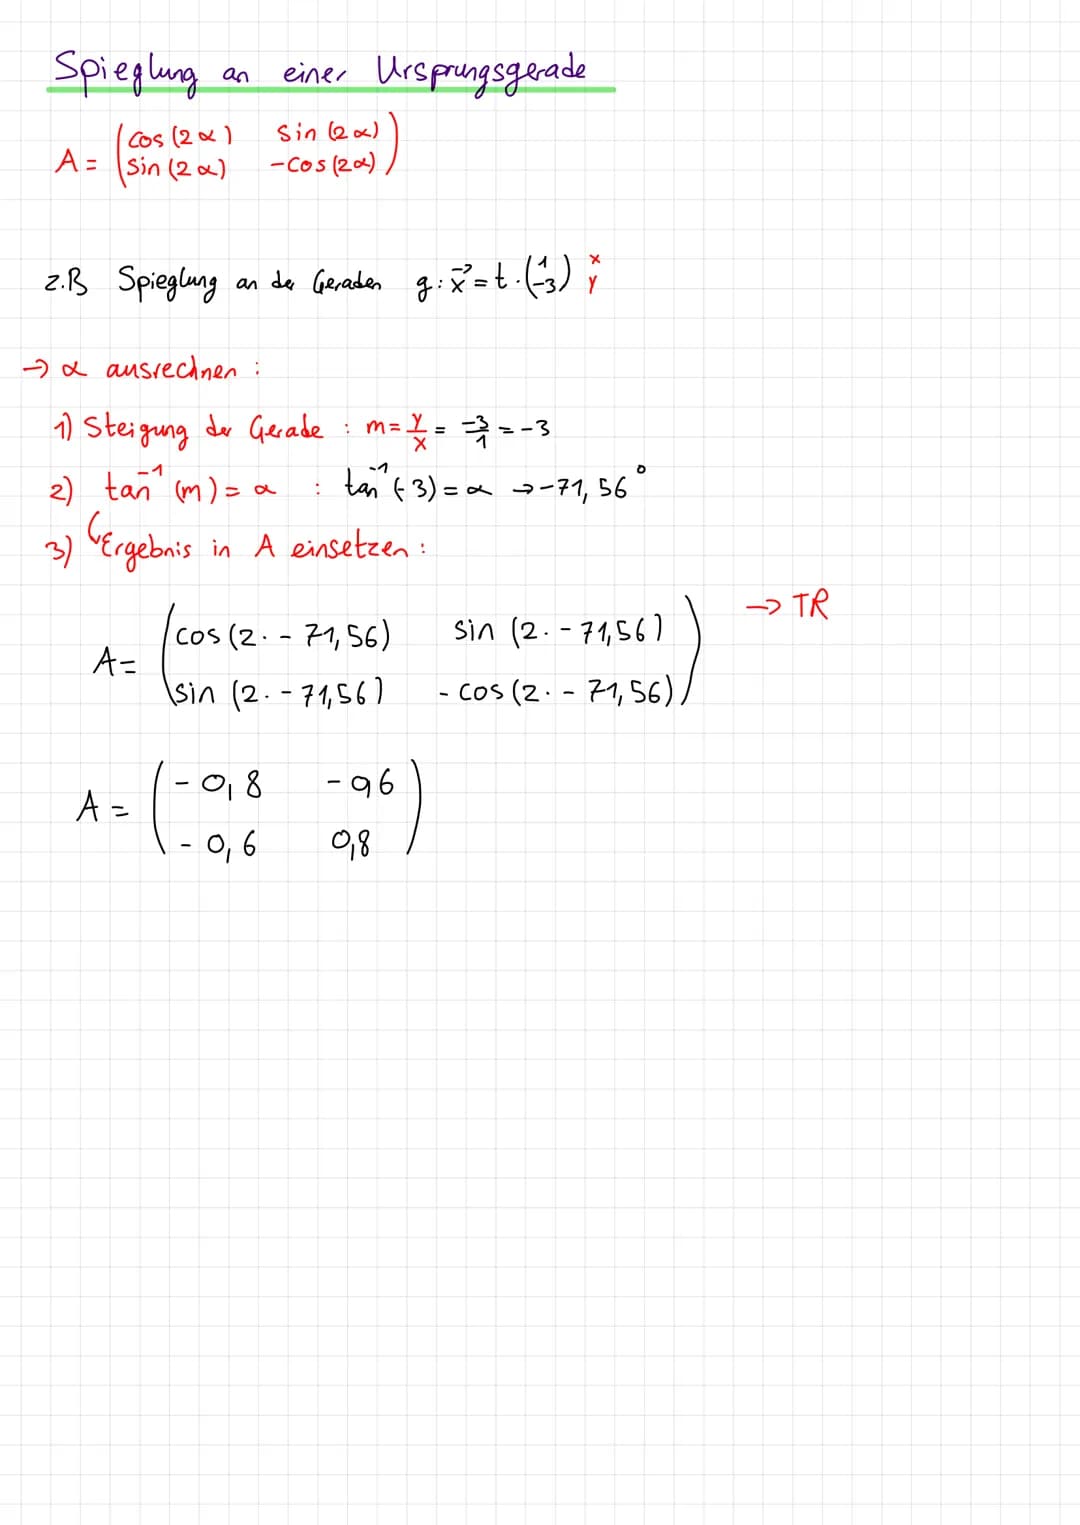 Spieglung an einer Ursprungsgerade
A = ( cos (2α) sin (2α)
sin (2α) -cos (2α) )
z.B Spieglung an der Geraden g: x⃗ = t · (1 -3) x y
→ α ausrechnen :
1) Steigung der Gerade : m = y/x = -3/1 = -3
2) tan⁻¹ (m) = α : tan⁻¹ (-3) = α → -71,56°
3) Ergebnis in A einsetzen :
→ TR
A = ( cos (2 · - 71,56) sin (2 · - 71,56)
sin (2 · - 71,56) - cos (2 · - 71,56) )
A = ( - 0,8 - 0,6
- 0,6 0,8 )